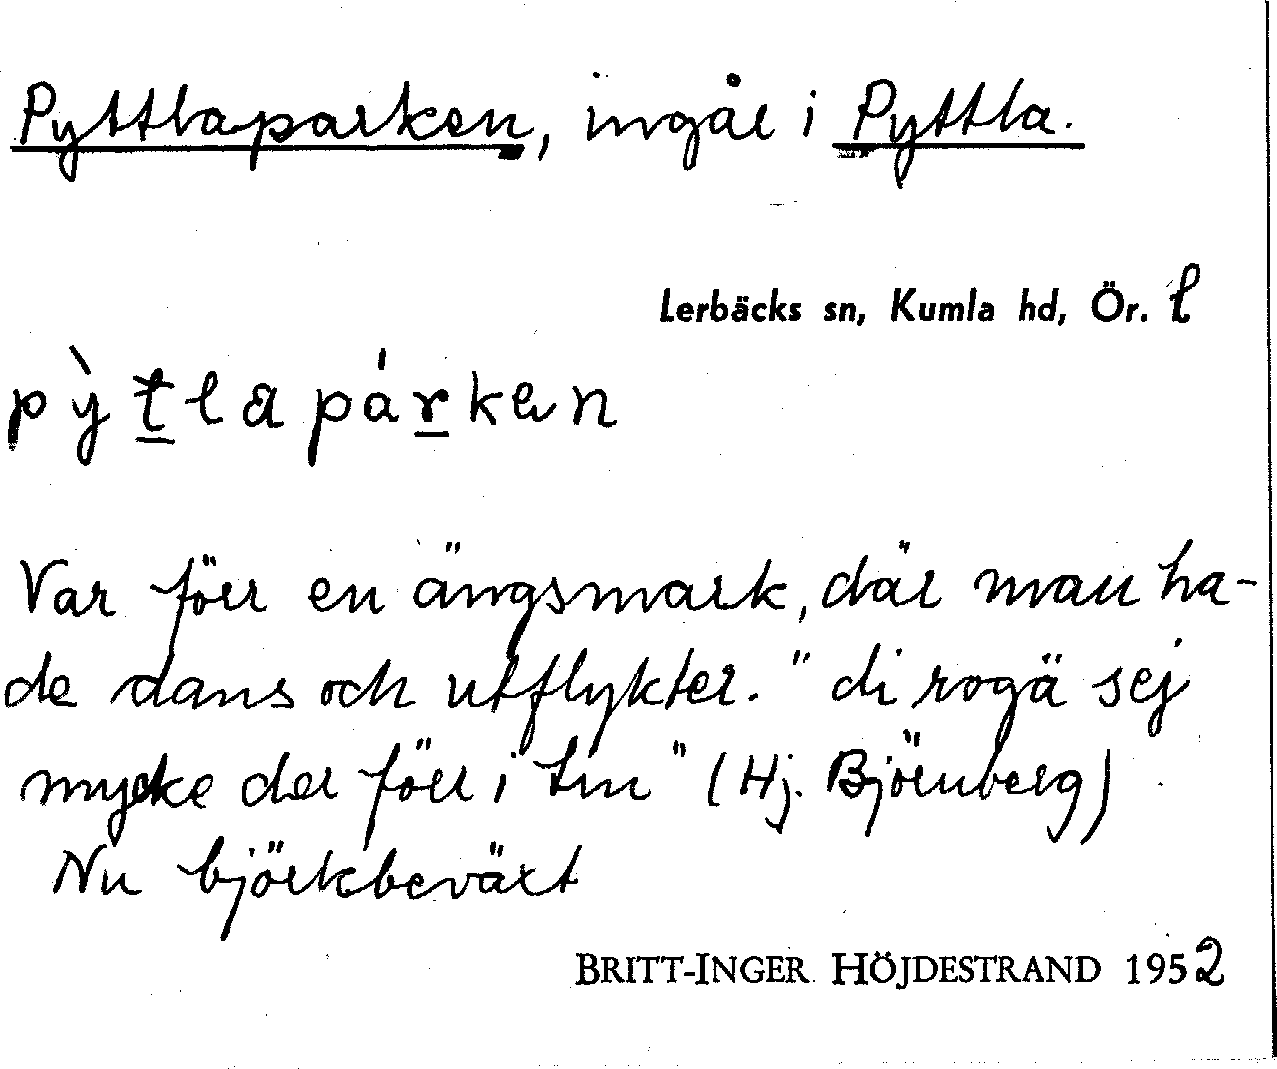 Pyttlaparken, ingår i Pyttla.
Lerbäcks sn, Kumla hd, Ör. l
pỳt̲lapár̲ken
Var förr en ängsmark, där man ha-
de dans och utflykter. "di rogä sej
mycke der förr i tin" (Hj. Björnberg)
Nu björkbeväxt
BRITT-INGER HÖJDESTRAND 1952